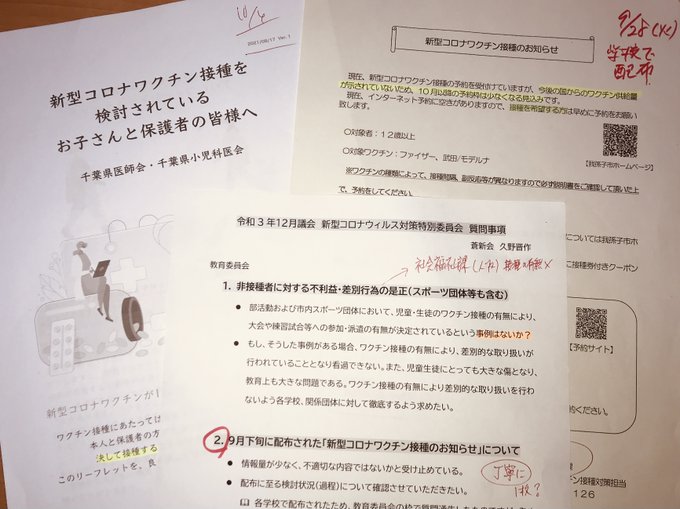 10/4
2021/08/17 Ver.1
新型コロナワクチン接種を
検討されている
お子さんと保護者の皆様へ
千葉県医師会・千葉県小児科医会
新型コロナワクチンが
ワクチン接種にあたっては
本人と保護者の方
決して接種する
このリーフレットを、良
9/28(火)
学校で
配布
新型コロナワクチン接種のお知らせ
現在、新型コロナワクチン接種の予約を受付けていますが、今後の国からのワクチン供給量
が示されていないため、10月以降の予約枠は少なくなる見込みです。
現在、インターネット予約に空きがありますので、接種を希望する方は早めに予約をお願い
致します。
○対象者：12歳以上
○対象ワクチン：ファイザー、武田/モデルナ
【我孫子市ホームページ】
※ワクチンの種類によって、接種間隔、副反応等が異なりますので必ず説明書をご確認して頂いた上
で、予約をしてください。
については我孫子市ホ
に接種券付きクーポン
【予約サイト】
ください。
クチン接種対策担当
126
令和3年12月議会 新型コロナウィルス対策特別委員会 質問事項
蒼新会 久野晋作
教育委員会
社会福祉課
接種の有無×
1. 非接種者に対する不利益・差別行為の是正(スポーツ団体等も含む)
● 部活動および市内スポーツ団体において、児童・生徒のワクチン接種の有無により、
大会や練習試合等への参加・派遣の有無が決定されているという事例はないか？
● もし、そうした事例がある場合、ワクチン接種の有無により、差別的な取り扱いが
行われていることとなり看過できない。また、児童生徒にとっても大きな傷となり、
教育上も大きな問題である。ワクチン接種の有無により差別的な取り扱いを行わ
ないよう各学校、関係団体に対して徹底するよう求めたい。
2. 9月下旬に配布された「新型コロナワクチン接種のお知らせ」について
● 情報量が少なく、不適切な内容ではないかと受け止めている。
丁寧に
1枚?
● 配布に至る検討状況(過程)について確認させていただきたい。
各学校で配布されたため、教育委員会の枠で質問通告したものである